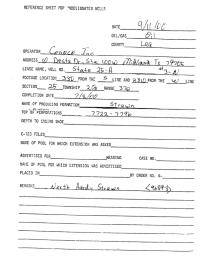 REFERENCE SHEET FOR UNDESIGNATED WELLS
DATE 9/11/
OIL/GAS Oil
COUNTY Lea
OPERATOR Conoco Inc
ADDRESS 10 Desta Dr. Ste 100W Midland Tx 79705
LEASE NAME, WELL NO. State 25-A
FOOTAGE LOCATION 330 FROM S LINE AND 2310 FROM THE W LINE
SECTION 25 TOWNSHIP RANGE
COMPLETION DATE
NAME OF PRODUCING FORMATION Strawn
TOP OF PERFORATIONS 7722-7796
DEPTH TO CASING SHOE
C-123 FILED
NAME OF POOL FOR WHICH EXTENSION WAS ASKED
ADVERTISED FOR HEARING CASE NO.
NAME OF POOL FOR WHICH EXTENSION WAS ADVERTISED
PLACED IN BY ORDER NO. R-
REMARKS North Hardy Strawn